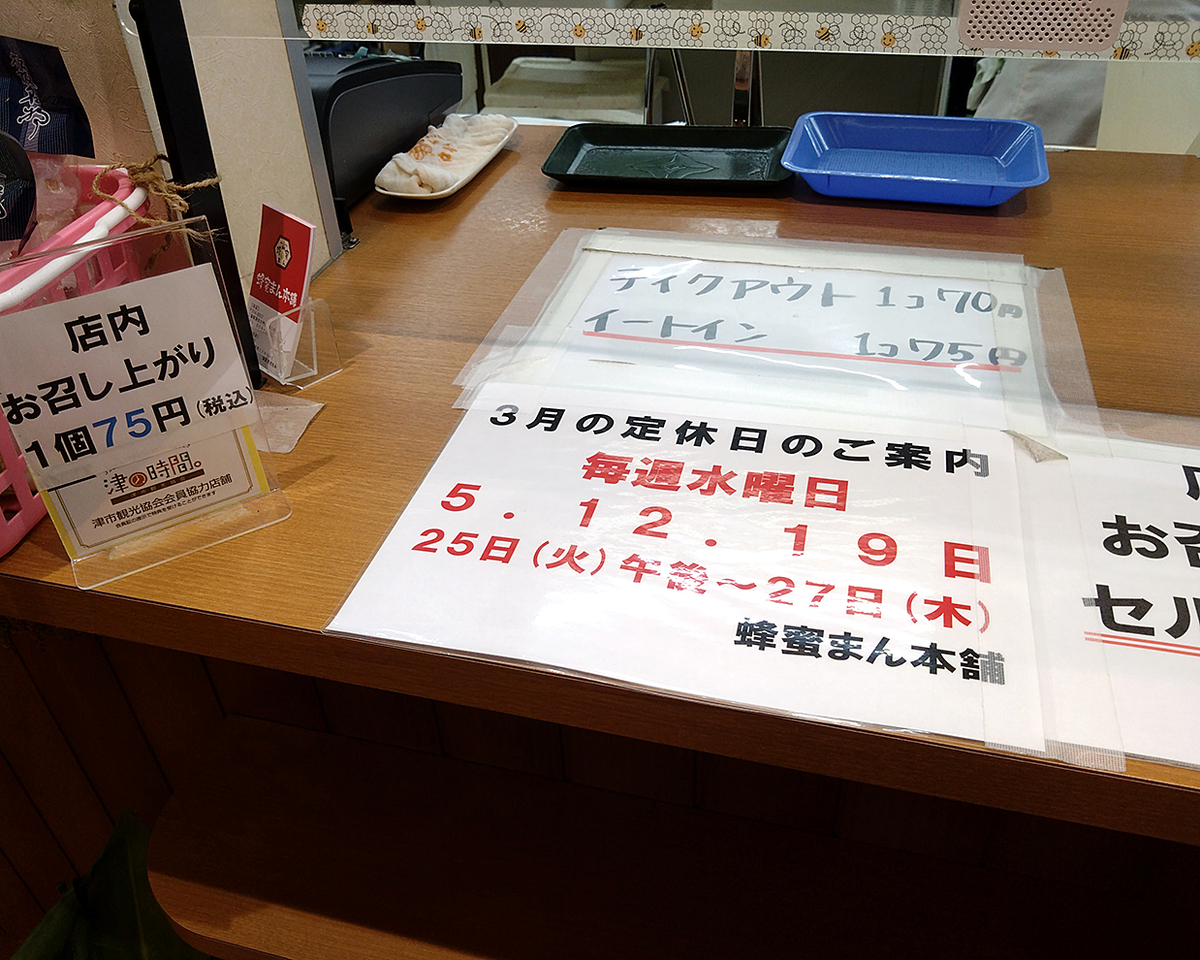 店内
お召し上がり
1個75円(税込)
津の時間。
津市観光協会会員協力店舗
蜂蜜まん本舗
テイクアウト 1コ70円
イートイン 1コ75円
3月の定休日のご案内
毎週水曜日
5.12.19日
25日(火)午後~27日(木)
蜂蜜まん本舗
お召
セル